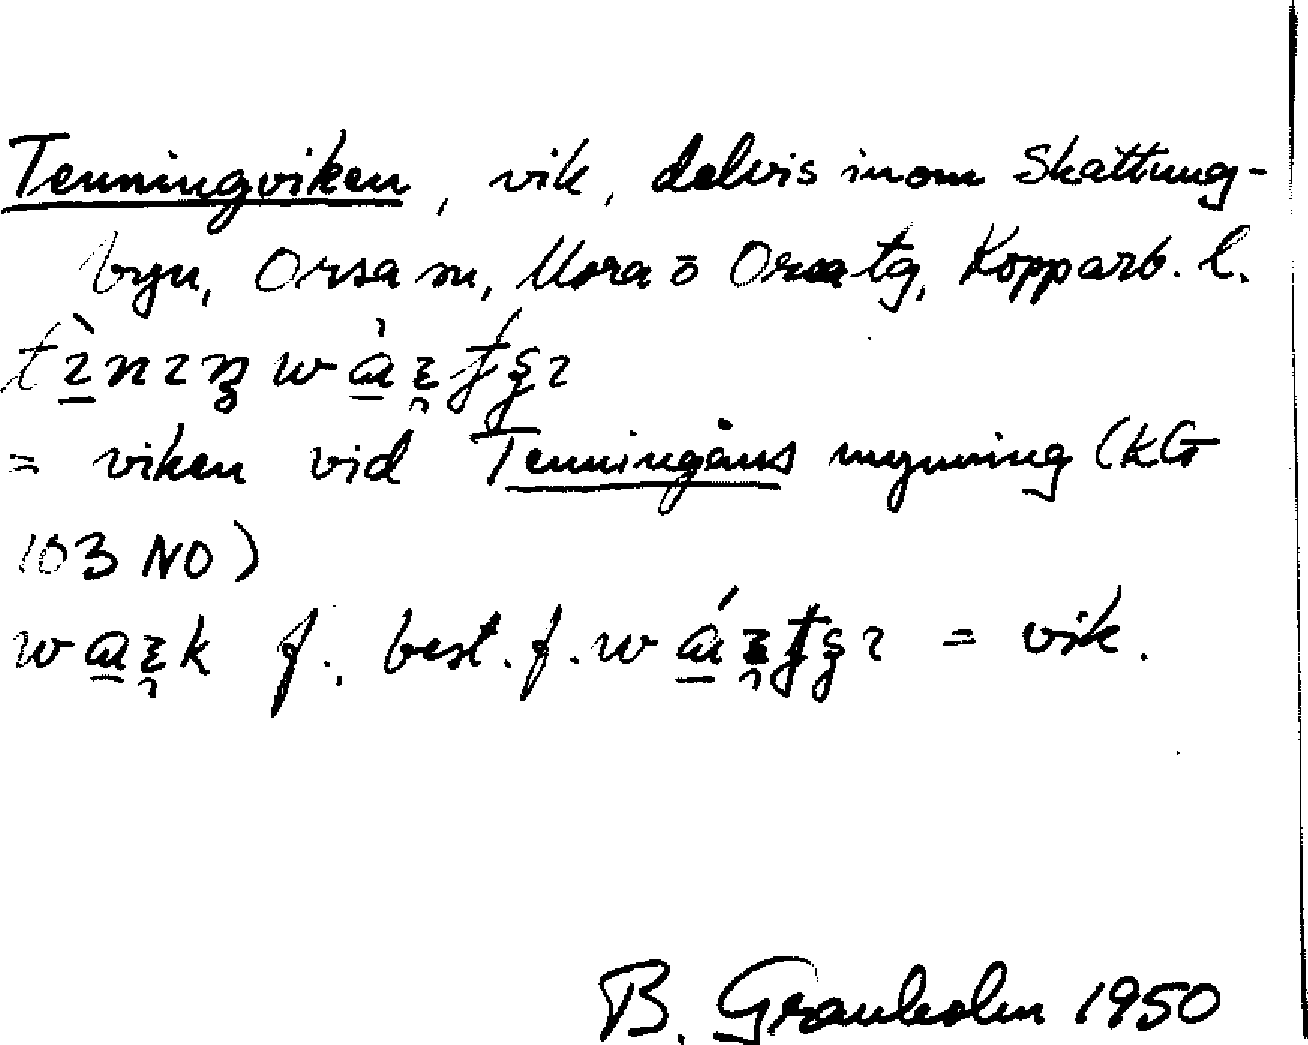 Tenningviken, vik, delvis inom Skattung-
byn, Orsa sn, Mora o Orsa tg, Kopparb. l.
= viken vid Tenningåns mynning (kG
103 NO)
f. best. f. = vik.
B. Granholm 1950